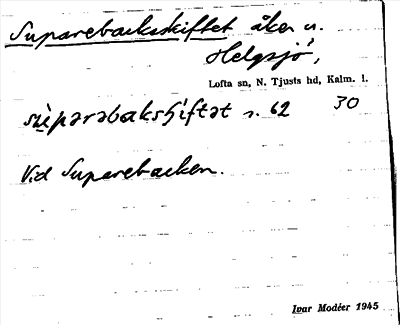 Suparebacksskiftet åker u.
Helgsjö,
Lofta sn, N. Tjusts hd, Kalm. l.
s. 62 30
Vid Suparebacken.
Ivar Modéer 1945